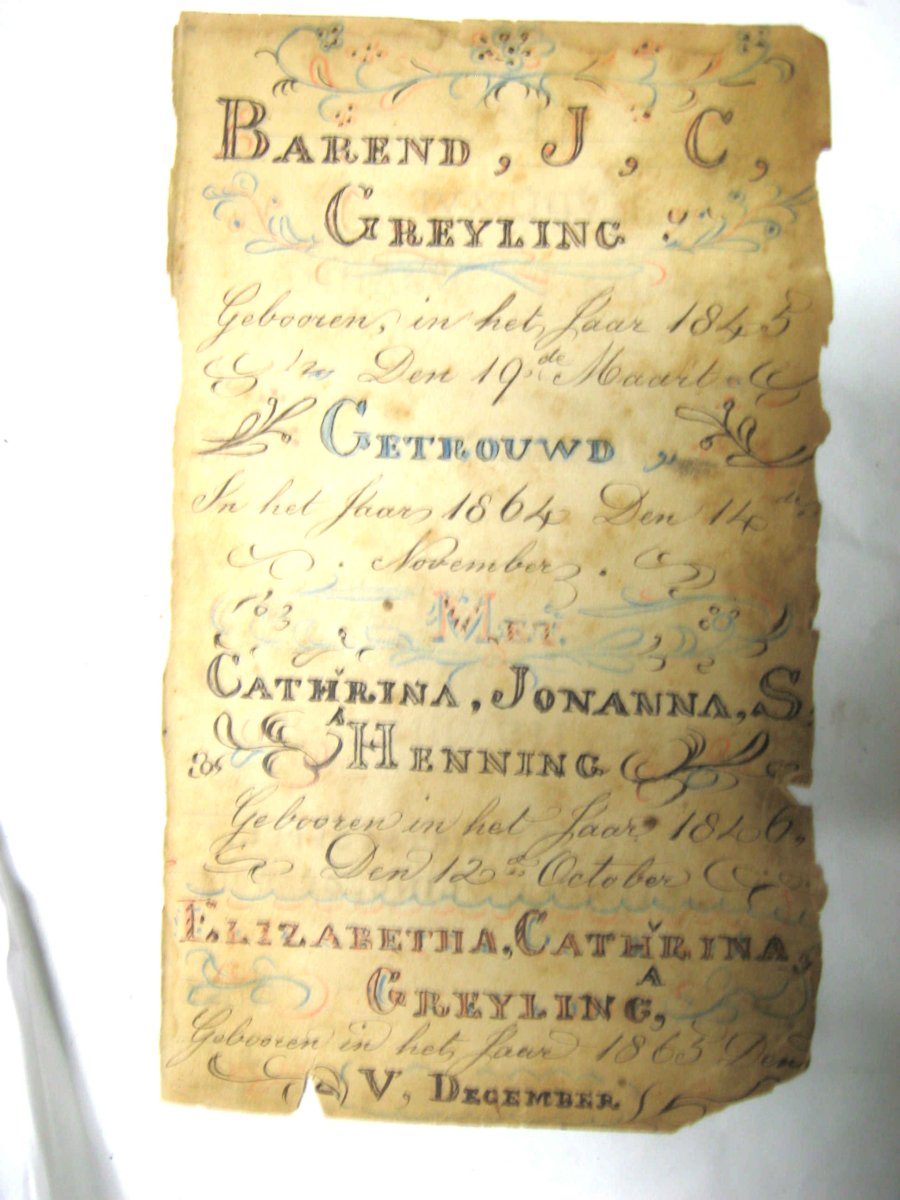 BAREND, J, C,
GREYLING
Gebooren, in het Jaar 1845
Den 19de Maart
GETROUWD,,
In het Jaar 1864 Den 14de
November.
MET.
CATHRINA, JONANNA, S
A
HENNING
Gebooren in het Jaar 1846,
Den 12de October
ELIZABETHA, CATHRINA,
A
GREYLING,
Gebooren in het Jaar 1865 Den
V, DECEMBER